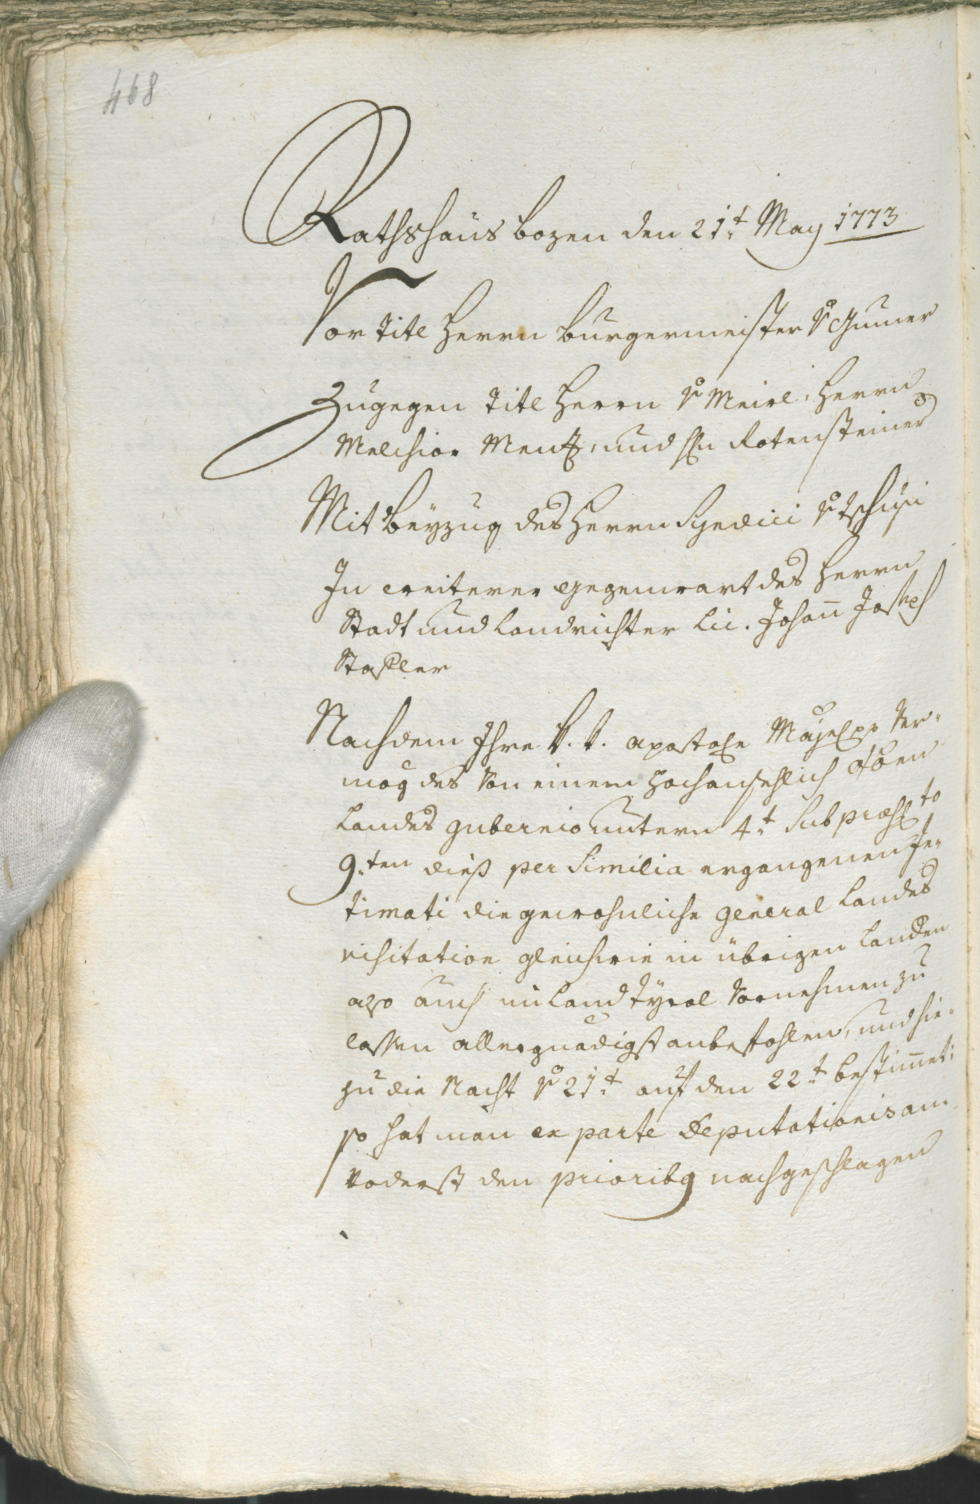 468
Rathshaus bozen den 21t. May 1773
Vor tite Herrn burgermeister v Gumer
Zugegen tite Herrn v Meirl, Herrn
Melchior Mentz, und Hn Rotensteiner
Mit beyzug des Herrn Syndici v
In weiterer gegenwart des Herrn
Stadt und Landrichter Lic. Johan̅ Joseph
Stapler
Nachdem Ihre k. k. apostole Mayest Ver-
mög des von einem hochansehlich
Landes gubernio untern 4t. sub præsto
9.ten dieß per Similia ergangenen In-
timati die gewohnliche general Landes
visitation gleichwie in übrigen Landen
also auch im Land Tyrol vornehmen zu
lassen allergnädigst anbefohlen, und hie-
zu die Nacht v 21t. auf den 22t. bestim̅et:
so hat man ex parte Deputationis am
voderst den prioribg nachgeschlagen